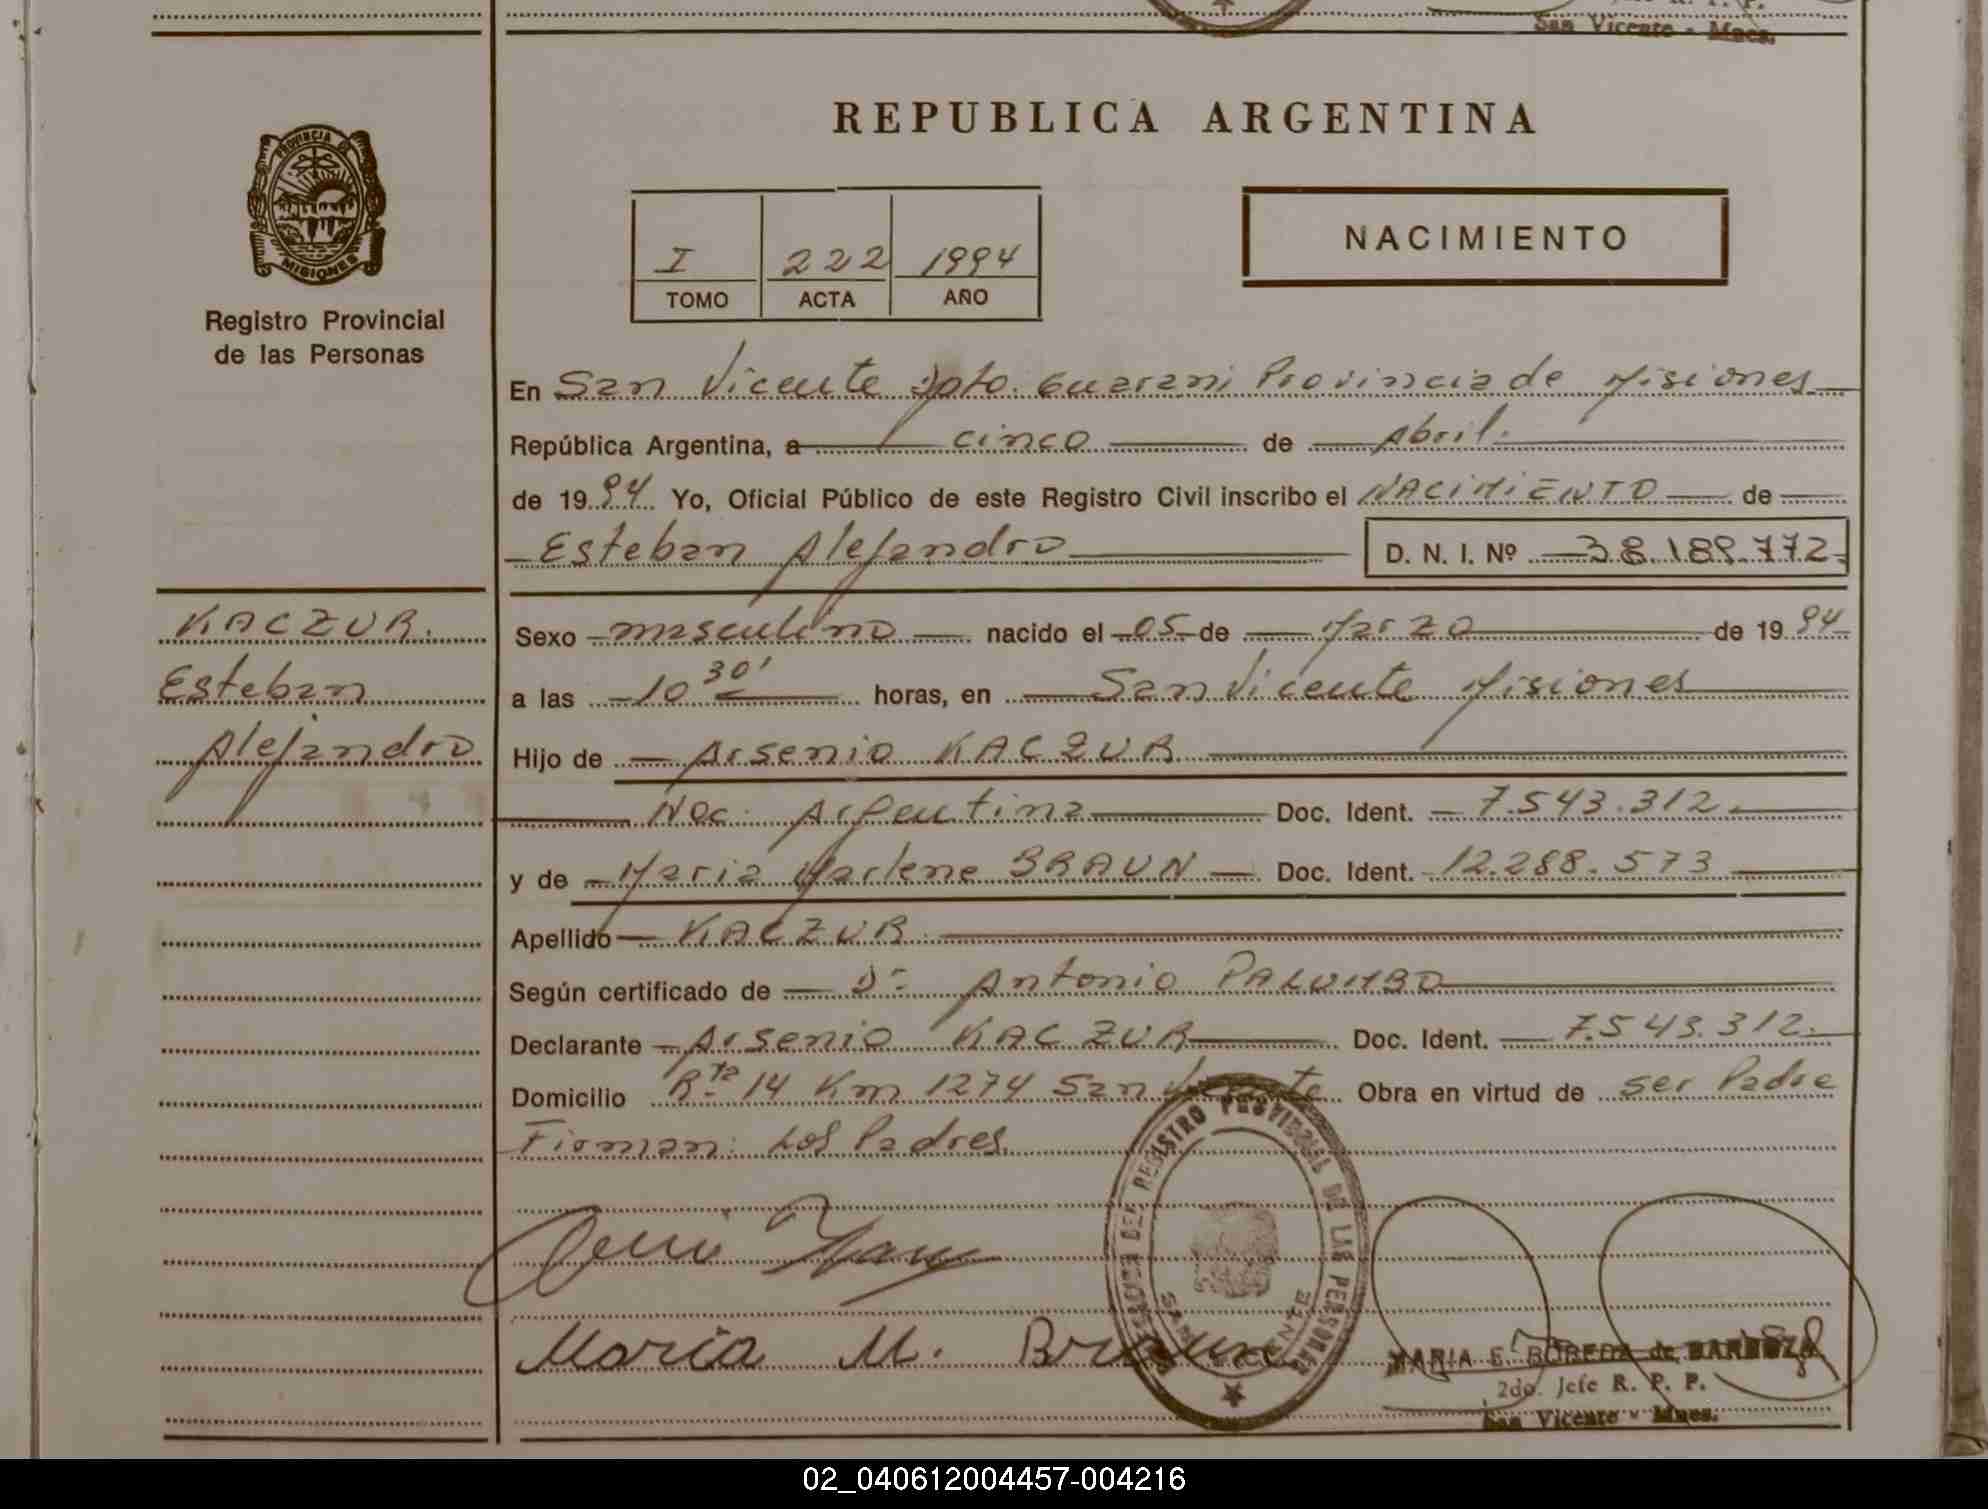 San Vicente - Mnes.
REPUBLICA ARGENTINA
PROVINCIA DE
MISIONES
Registro Provincial
de las Personas
I 222 1994
TOMO ACTA AÑO
NACIMIENTO
En San Vicente Dpto. Guarani Provincia de Misiones
República Argentina, a cinco de Abril.
de 1994 Yo, Oficial Público de este Registro Civil inscribo el NACIMIENTO de
Esteban Alejandro D. N. I. Nº 38.189.772
KACZUR.
Esteban
Alejandro
Sexo masculino nacido el 05 de Marzo de 1994
a las 10 30' horas, en San Vicente Misiones
Hijo de Arsenio KACZUR
Nac. Argentina Doc. Ident. 7.543.312.
y de Maria Marlene BRAUN Doc. Ident. 12.288.573
Apellido KACZUR
Según certificado de Dr Antonio PALUMBO
Declarante Arsenio KACZUR Doc. Ident. 7.543.312.
Domicilio Rta 14 Km 1274 San Vicente Obra en virtud de ser Padre
Firman: Los Padres.
REGISTRO PROVINCIAL DE LAS PERSONAS
SAN VICENTE
Maria M. Braun
MARIA E. BOREDA de BARBOZA
2do. Jefe R. P. P.
San Vicente - Mnes.
02_040612004457-004216